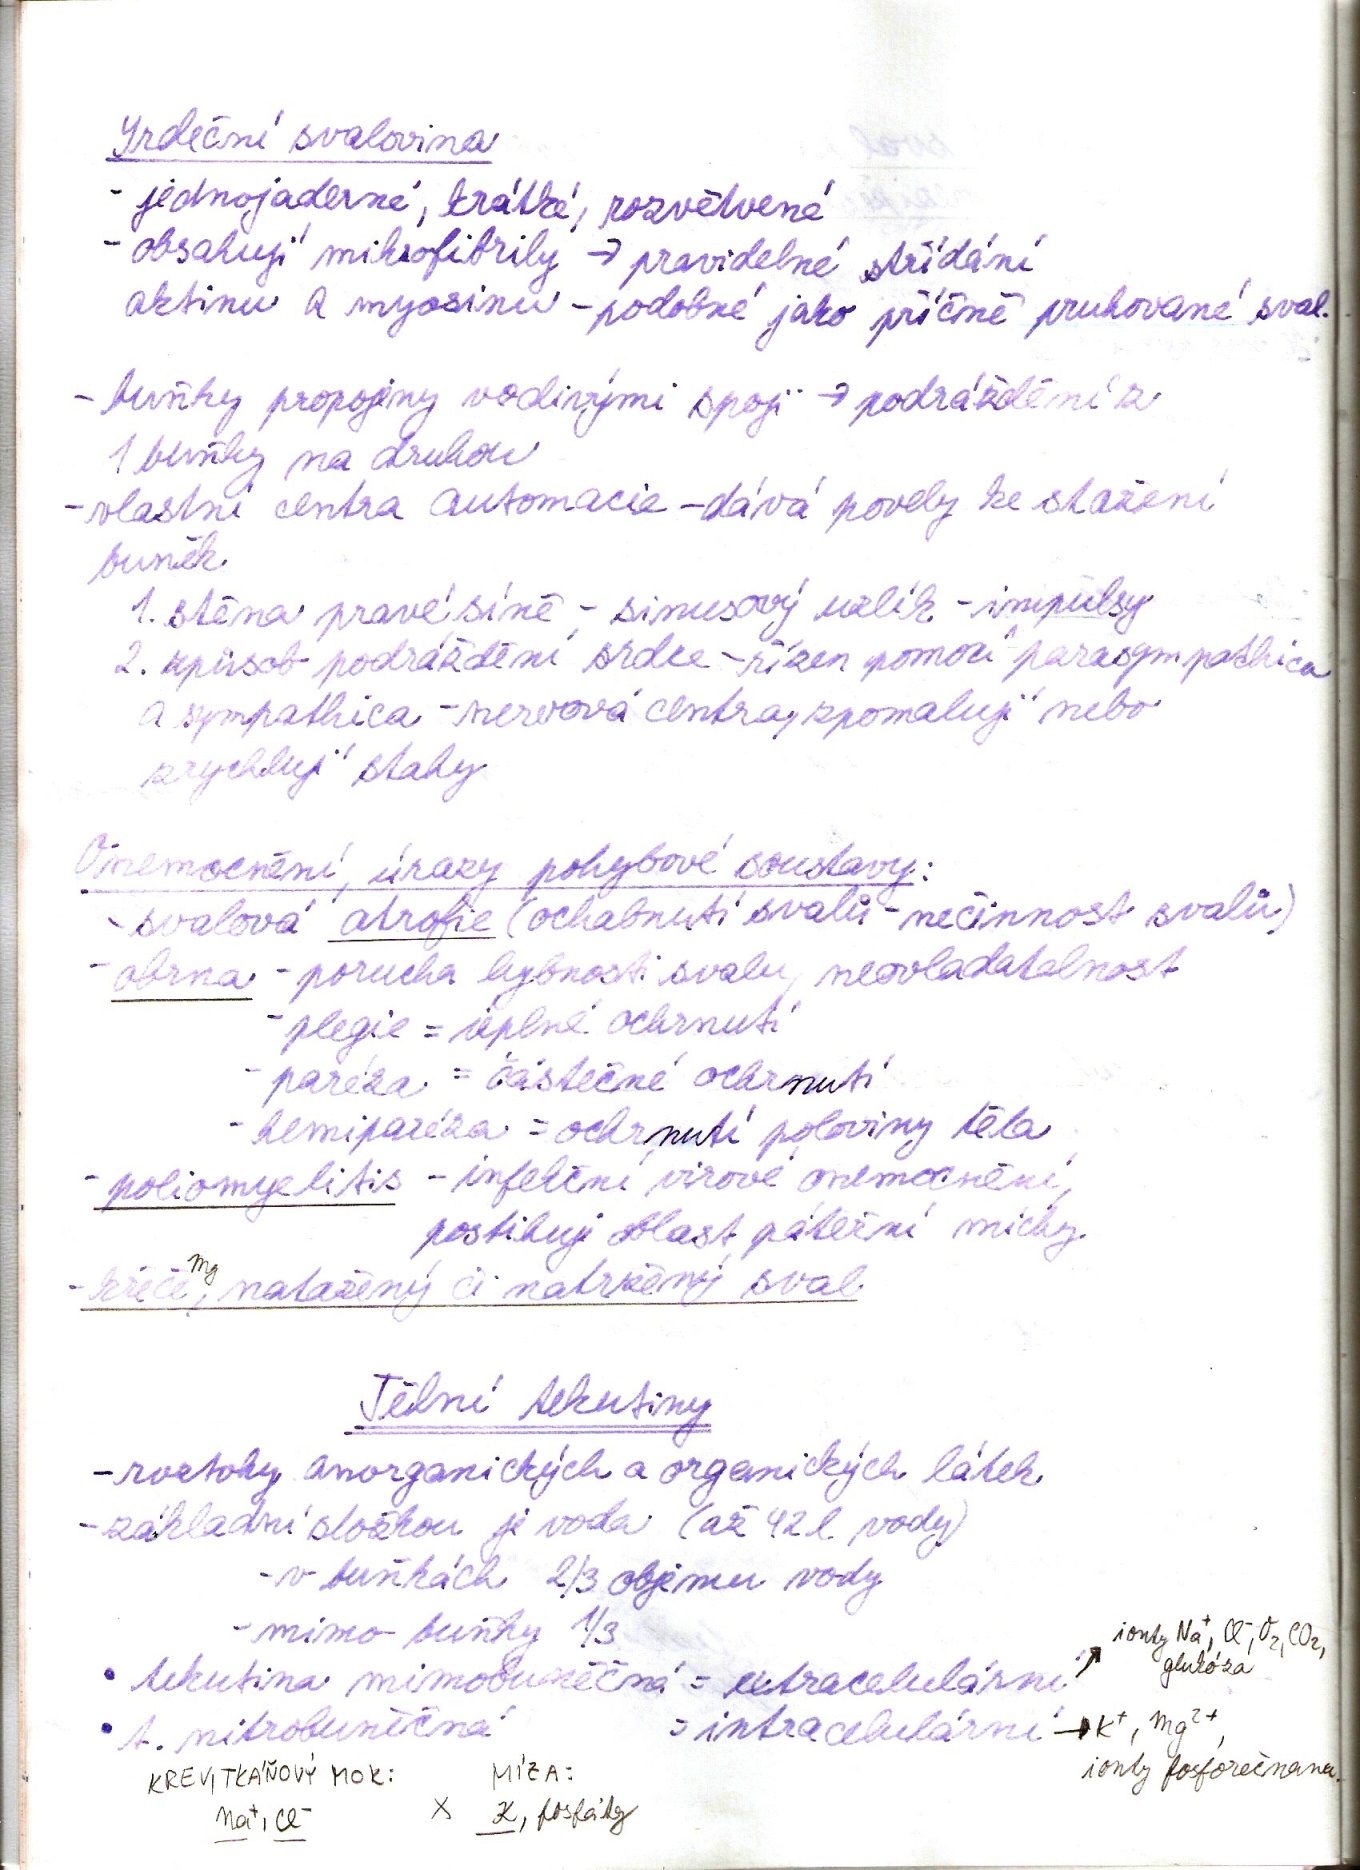 Srdeční svalovina
- jednojaderné, krátké, rozvětvené
- obsahují mikrofibrily → pravidelné střídání
aktinu a myosinu - podobné jako příčně pruhované sval.
- buňky propojeny vodivými spoji → podráždění z
1 buňky na druhou
- vlastní centra automacie - dává povely ke stažení
buněk
1. stěna pravé síně - sinusový uzlík - impulsy
2. způsob podráždění srdce - řízen pomocí parasympathica
a sympathica - nervová centra, zpomalují nebo
zrychlují stahy
Onemocnění, úrazy pohybové soustavy:
- svalová atrofie (ochabnutí svalů - nečinnost svalů)
- obrna - porucha hybnosti svalu, neovladatelnost
- plegie = úplné ochrnutí
- paréza = částečné ochrnutí
- hemiparéza = ochrnutí poloviny těla
- poliomyelitis - infekční virové onemocnění,
postihuje oblast páteřní míchy
Mg
- křeče, natažený či natržený sval
Tělní tekutiny
- roztoky anorganických a organických látek
- základní složkou je voda (až 42 l vody)
- v buňkách 2/3 objemu vody
- mimo buňky 1/3
• tekutina mimobuněčná = extracelulární ↗ ionty Na⁺, Cl⁻, O₂, CO₂,
glukóza
• t. nitrobuněčná = intracelulární → K⁺, Mg²⁺,
ionty fosforečnanu
KREV, TKÁŇOVÝ MOK: MÍZA:
Na⁺, Cl⁻ X K, fosfáty